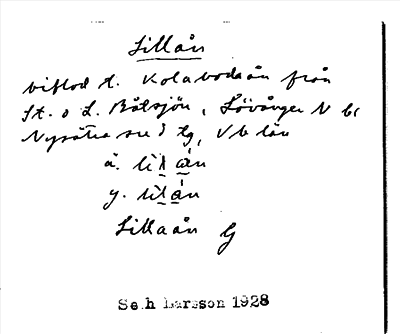 Lillån
biflod t. Kolabodaån från
St. o L. Båtsjön, Lövånger N b
Nysätra sn i tg, Vb län
ä. lil ån
y. lilån
Lillaån G
Seth Larsson 1928